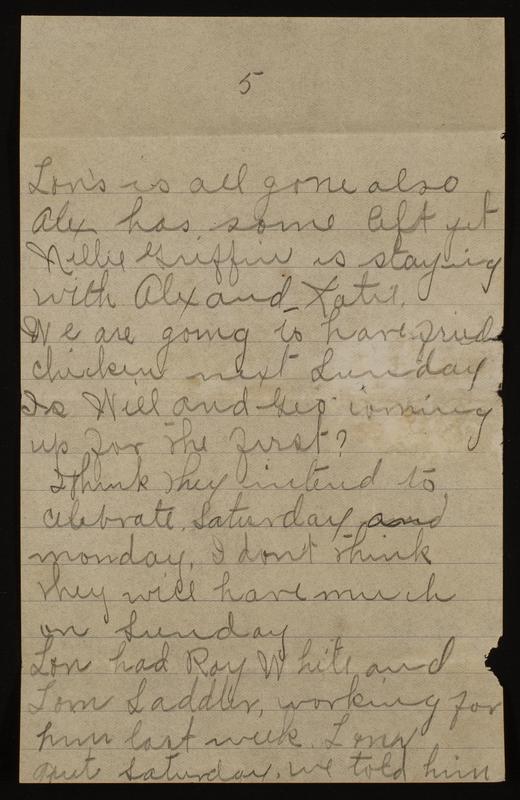 5
Lon's is all gone also
Alex has some left yet
Nellie Griffin is staying
with Alex and Katie.
We are going to have fried
chicken next Sunday
Is Will and Geo coming
up for the first?
I think they intend to
celebrate, Saturday and
monday, I don't think
they will have much
on Sunday
Lon had Ray White and
Tom Saddler, working for
him last week.
quit Saturday. we told him